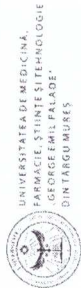 UNIVERSITATEA DE MEDICINĂ,
FARMACIE, ȘTIINȚE ȘI TEHNOLOGIE
„GEORGE EMIL PALADE”
DIN TÂRGU MUREȘ